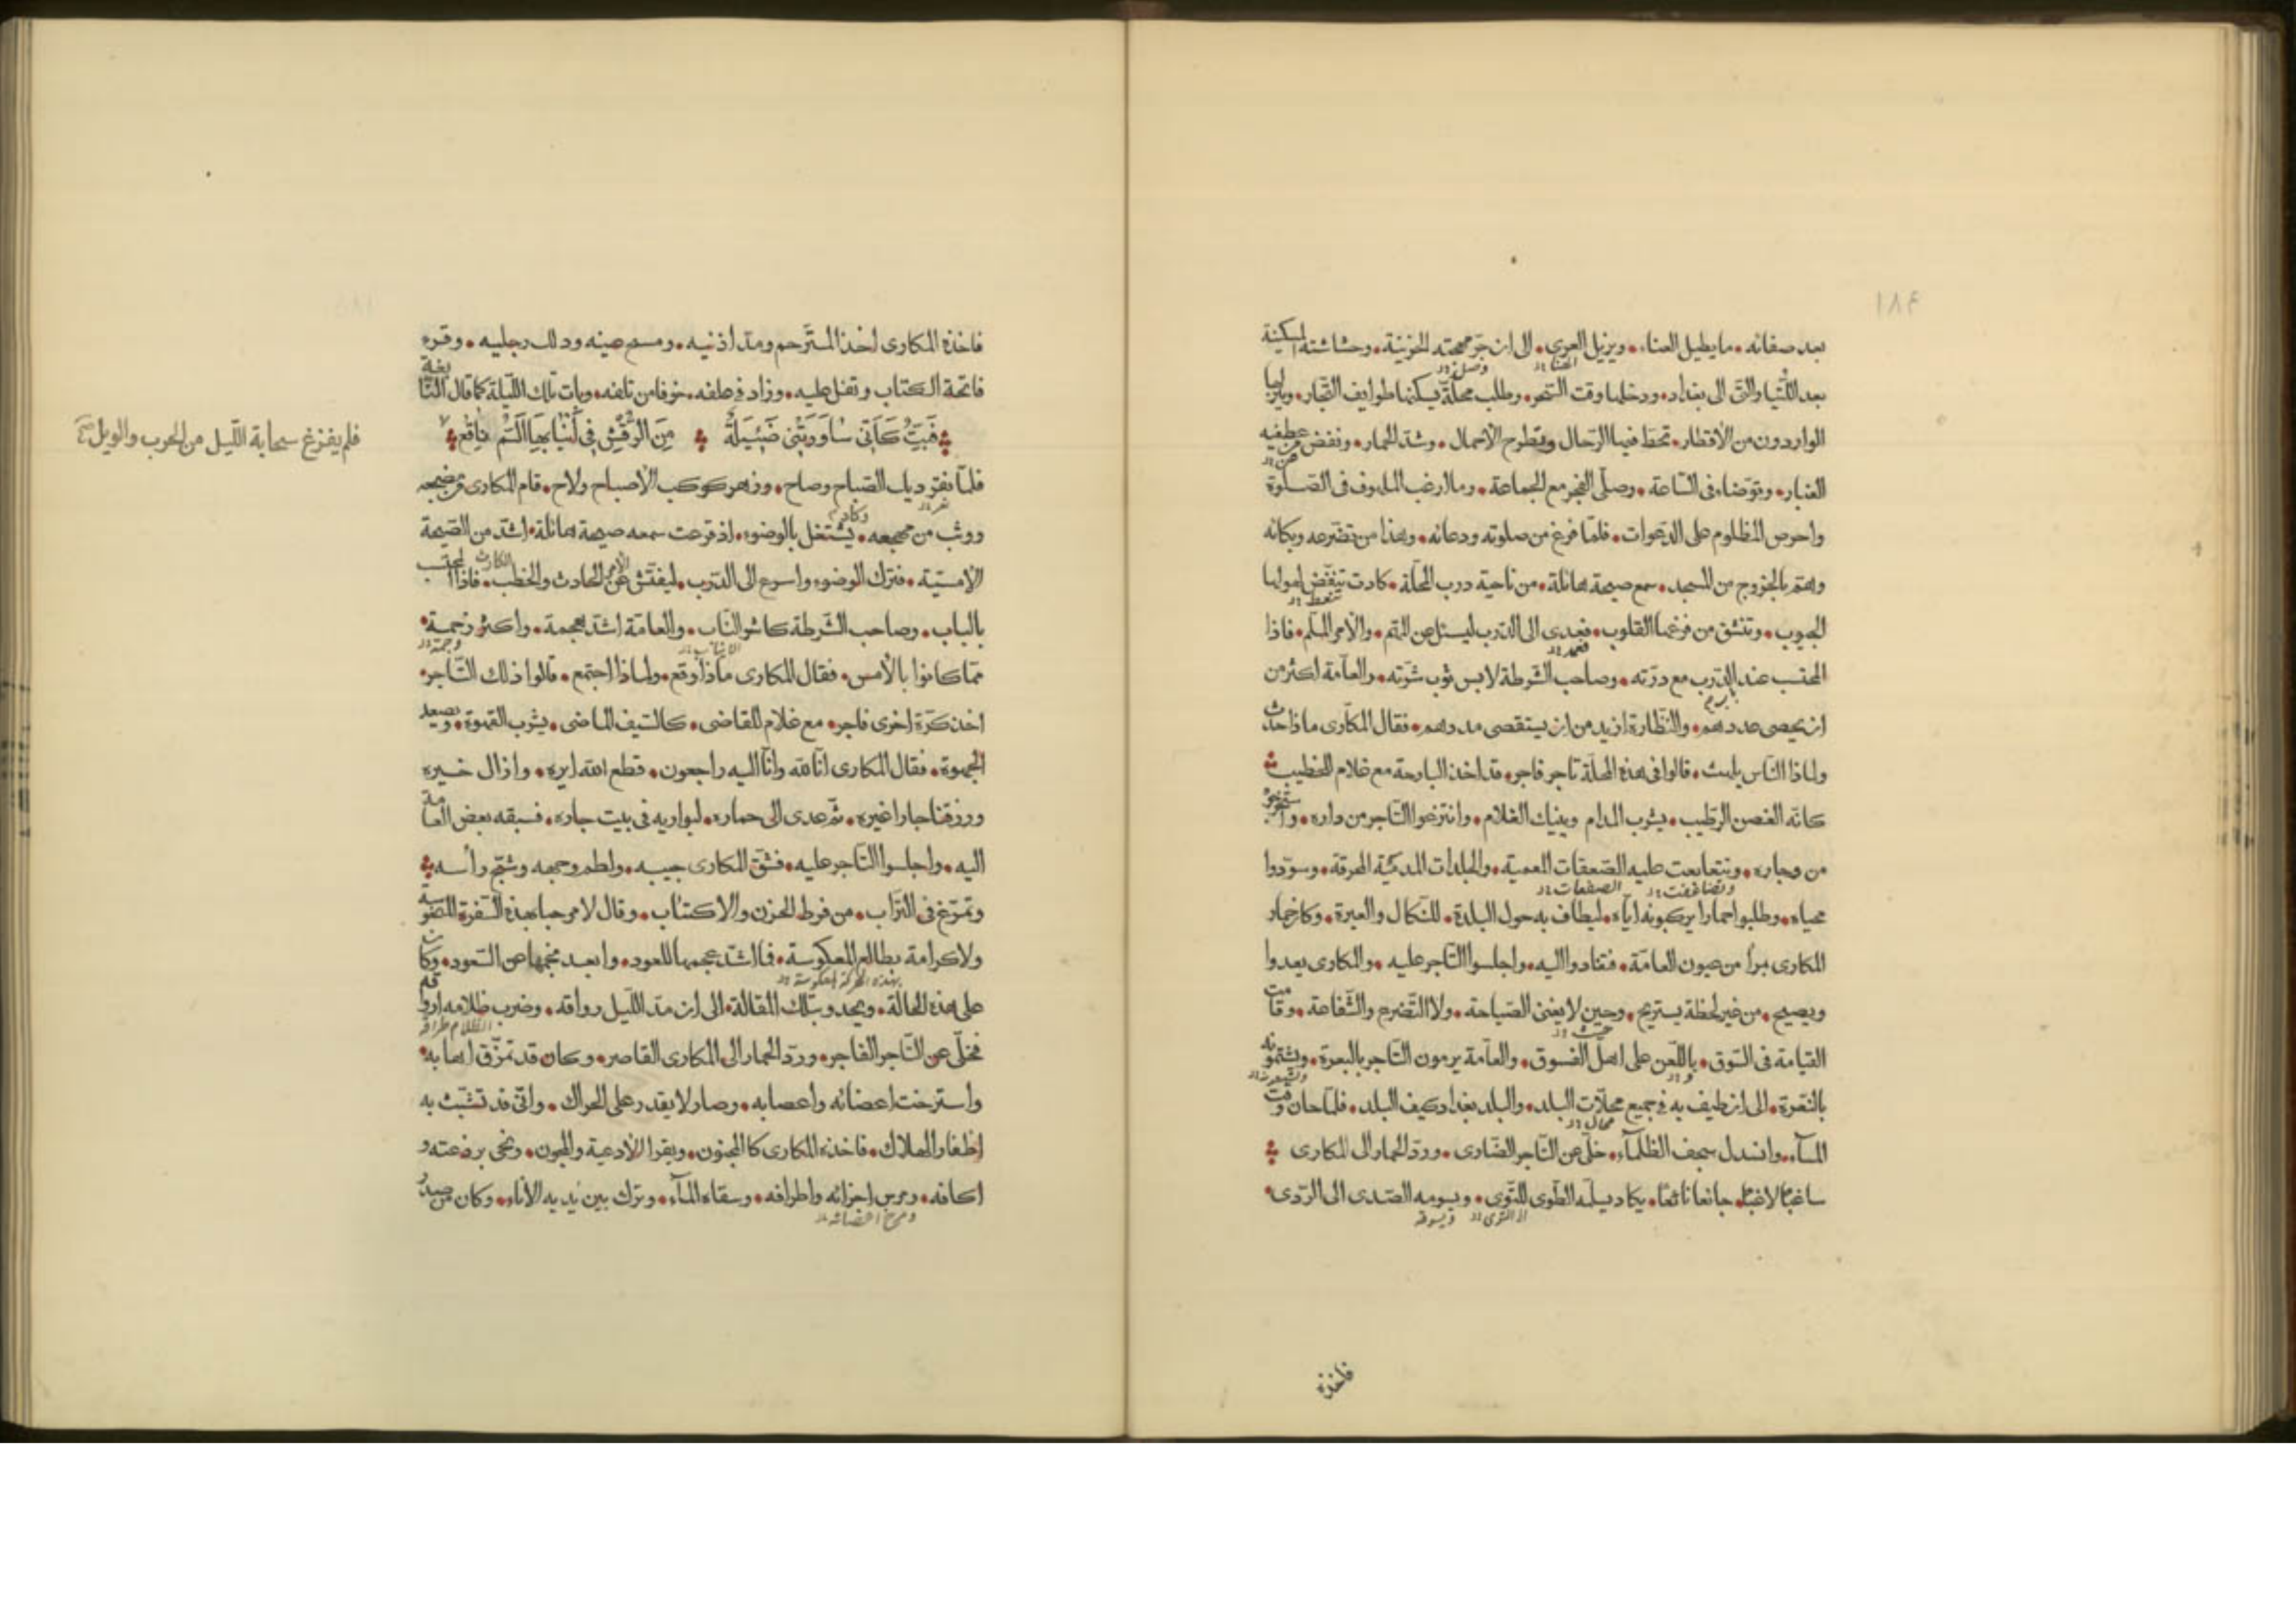 ١٨٤
بعد صفائه ۰ ما يطيل العناء ۰ ويزيل العرى ۰ الى ان جر مهجته الحزينة ۰ وحشاشته المسكينة
بعد اللتيا والتى الى بغداد ۰ ودخلها وقت السحر ۰ وطلب محلة يسكنها طوايف التجار ۰ وينزلها
الواردون من الأقطار ۰ تحط فيها الرحال ويطرح الأحمال ۰ وشد الحمار ۰ ونفض عن عطفيه
الغبار ۰ وتوضاء فى الساعة ۰ وصلى الفجر مع الجماعة ۰ وما ارغب الملهوف فى الصلوة
واحرص المظلوم على الدعوات ۰ فلما فرغ من صلوته ودعائه ۰ وهذا من تضرعه وبكائه
وهتم بالخروج من المسجد ۰ سمع صيحة هائلة ۰ من ناحية درب المحلة ۰ كادت تنقض لهولها
الجيوب ۰ وتنشق من فزعها القلوب ۰ فعدى الى الدرب ليسئل عن المهم ۰ والأمر الملم ۰ فاذا
المحتسب عند الدرب مع درته ۰ وصاحب الشرطة لابس ثوب شرته ۰ والعامة اكثر من
ان يحصى عددهم ۰ والنظارة ازيد من ان يستقصى مددهم ۰ فقال المكارى ماذا حدث
ولماذا الناس يلهث ۰ قالوا فى هذه المحلة تاجر فاجر ۰ قد اخذ البارحة مع غلام للخطيب
كانه الغصن الرطيب ۰ يشرب المدام وينيك الغلام ۰ وانتزعوا التاجر من داره ۰ واستخرجوه
من وجاره ۰ وتتعابعت عليه الصعقات المعمية ۰ والجلدات المدكية المحرقة ۰ وسودوا
محياه ۰ وطلبوا حمارا يركبونه اياه ۰ ليطاف به حول البلدة ۰ للنكال والعبرة ۰ وكان حمار
المكارى مرأ من عيون العامة ۰ فقادوا اليه ۰ واجلسوا التاجر عليه ۰ والمكارى يعدوا
ويصيح ۰ من غير لحظة يستريح ۰ وحين لا يغنى الصياحة ۰ ولا التضرع والشفاعة ۰ وقامت
القيامة فى السوق ۰ باللعن على اهل الفسوق ۰ والعامة يرمون التاجر بالبعرة ۰ ويشتمونه
بالنقرة ۰ الى ان طيف به فى جميع محلات البلد ۰ والبلد بغداد كيف البلد ۰ فلما حان وقت
المسآء ۰ وانسدل سجف الظلماء ۰ خلى عن التاجر الضارى ۰ ورد الحمار الى المكارى
ساغبا لاغبا ۰ جائعا نائعا ۰ يكاد يسلمه الطوى للتوى ۰ ويسومه الصدى الى الردى
فاخذه
فاخذه المكارى اخذ المترحم ومد اذنيه ۰ ومسح عينه ودلك رجليه ۰ وقره
فاتحة الكتاب وتفل عليه ۰ وزاد فى علفه ۰ خوفا من تلفه ۰ وبات تلك الليلة كما قال النابغة
فَبِتُّ كَأَنّى سَاوَرَتْنى ضَئيلَةٌ مِنَ الرُّقْشِ فى أَنْيَابِهَا السَّمُّ نَاقِعُ
فلم يفزغ سحابة الليل من الحرب والويل صح
فلما نقر ديك الصباح وصاح ۰ وزهر كوكب الأصباح ولاح ۰ قام المكارى من مضجعه
ووثب من مهجعه ۰ يشتغل بالوضوء ۰ اذ قرعت سمعه صيحة هائلة ۰ اشد من الصيحة
الأمسية ۰ فترك الوضوء واسرع الى الدرب ۰ ليفتش عن الحادث والخطب ۰ فاذا المحتسب
بالباب ۰ وصاحب الشرطة كاشر الناب ۰ والعامة اشد هجمة ۰ واكثر زحمة
مما كانوا بالأمس ۰ فقال المكارى ماذا وقع ۰ ولماذا اجتمع ۰ قالوا ذلك التاجر
اخذ كرة اخرى فاجر ۰ مع غلام للقاضى ۰ كالسيف الماضى ۰ يشرب القهوة ۰ ويصعد
الجهوة ۰ فقال المكارى انا لله وانا اليه راجعون ۰ قطع الله ايره ۰ وازال خيره
ورزقنا جارا غيره ۰ ثم عدى الى حماره ۰ ليواريه فى بيت جاره ۰ فسبقه بعض العامة
اليه ۰ واجلسوا التاجر عليه ۰ فشق المكارى جيبه ۰ ولطم وجهه وشج رأسه
وتمرغ فى التراب ۰ من فرط الحزن والاكتئاب ۰ وقال لا مرحبا بهذه السفرة المنحوسة
ولا كرامة بطالع المعكوسة ۰ فما اشد عجمها للعود ۰ وابعد نجمها عن السعود ۰ وكان
على هذه الحالة ۰ ويحدو بتلك المقالة ۰ الى ان مد الليل رواقه ۰ وضرب ظلامه
فخلى عن التاجر الفاجر ۰ ورد الحمار الى المكارى القاصر ۰ وكان قد تمزق اهابه
واسترخت اعضائه واعصابه ۰ وصار لا يقدر على الحراك ۰ واتى قد تشبث به
اظفار الهلاك ۰ فاخذه المكارى كالمجنون ۰ ويقرا الأدعية والمجون ۰ ونحى برذعته و
اكافه ۰ ومرس اجزائه واطرافه ۰ وسقاه المآء ۰ وترك بين يديه الأناء ۰ وكان من صدر